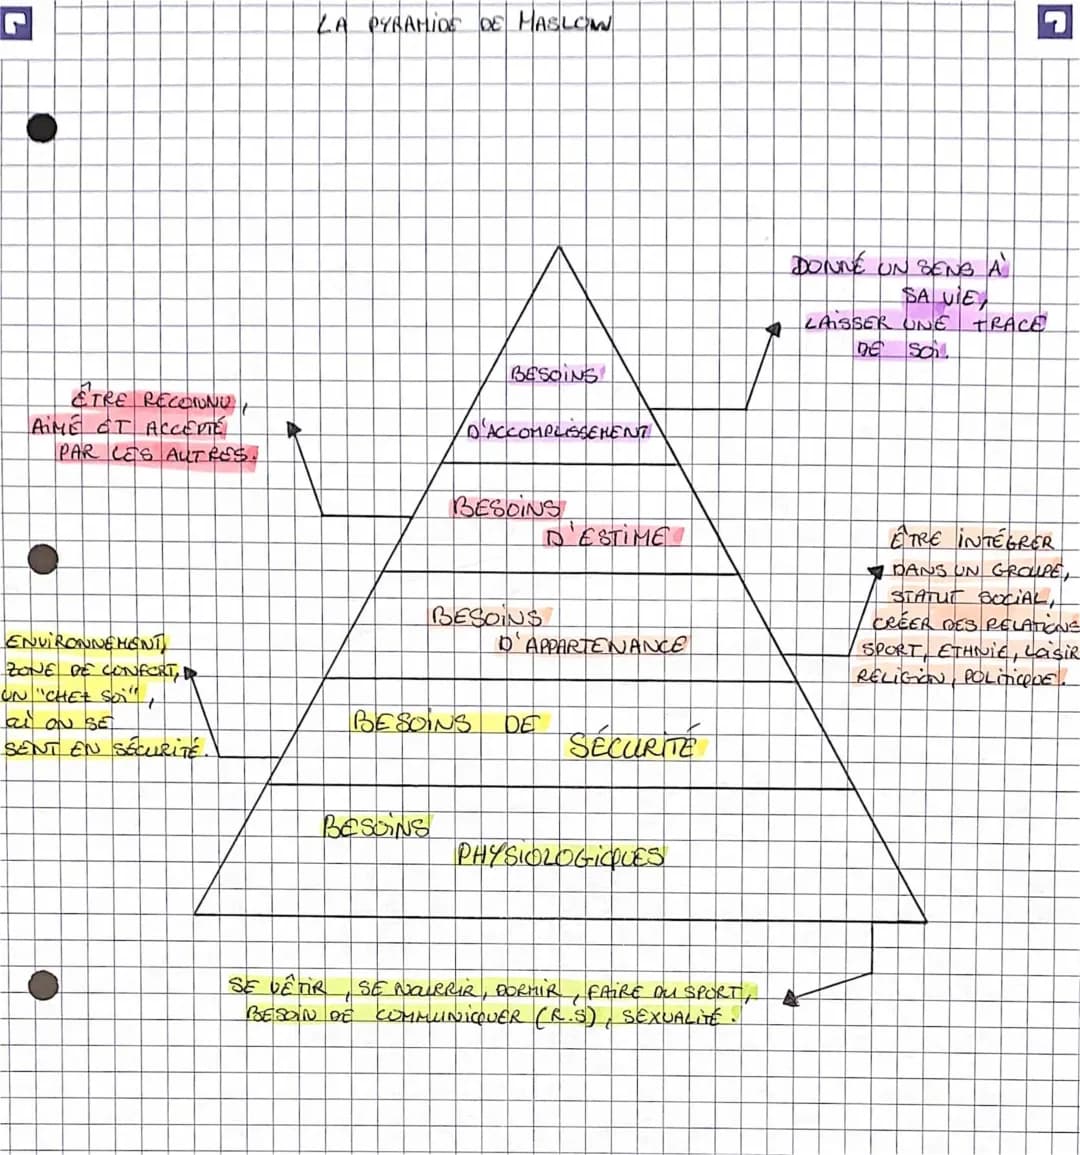 LA PYRAMIDE DE MASLOW
DONNÉ UN SENS À
SA VIE,
LAISSER UNE TRACE
DE SOI.
BESOINS
D'ACCOMPLISSEMENT
ÊTRE RECONNU,
AIMÉ ET ACCEPTÉ
PAR LES AUTRES.
BESOINS
D'ESTIME
ÊTRE INTÉGRER
DANS UN GROUPE,
STATUT SOCIAL,
CRÉER DES RELATIONS
SPORT, ETHNIE, LOISIR
RELIGION, POLITIQUE.
BESOINS
D'APPARTENANCE
ENVIRONNEMENT,
ZONE DE CONFORT,
UN "CHEZ SOI",
OÙ ON SE
SENT EN SÉCURITÉ.
BESOINS DE
SÉCURITÉ
BESOINS
PHYSIOLOGIQUES
SE VÊTIR, SE NOURRIR, DORMIR, FAIRE DU SPORT,
BESOIN DE COMMUNIQUER (R.S), SEXUALITÉ.